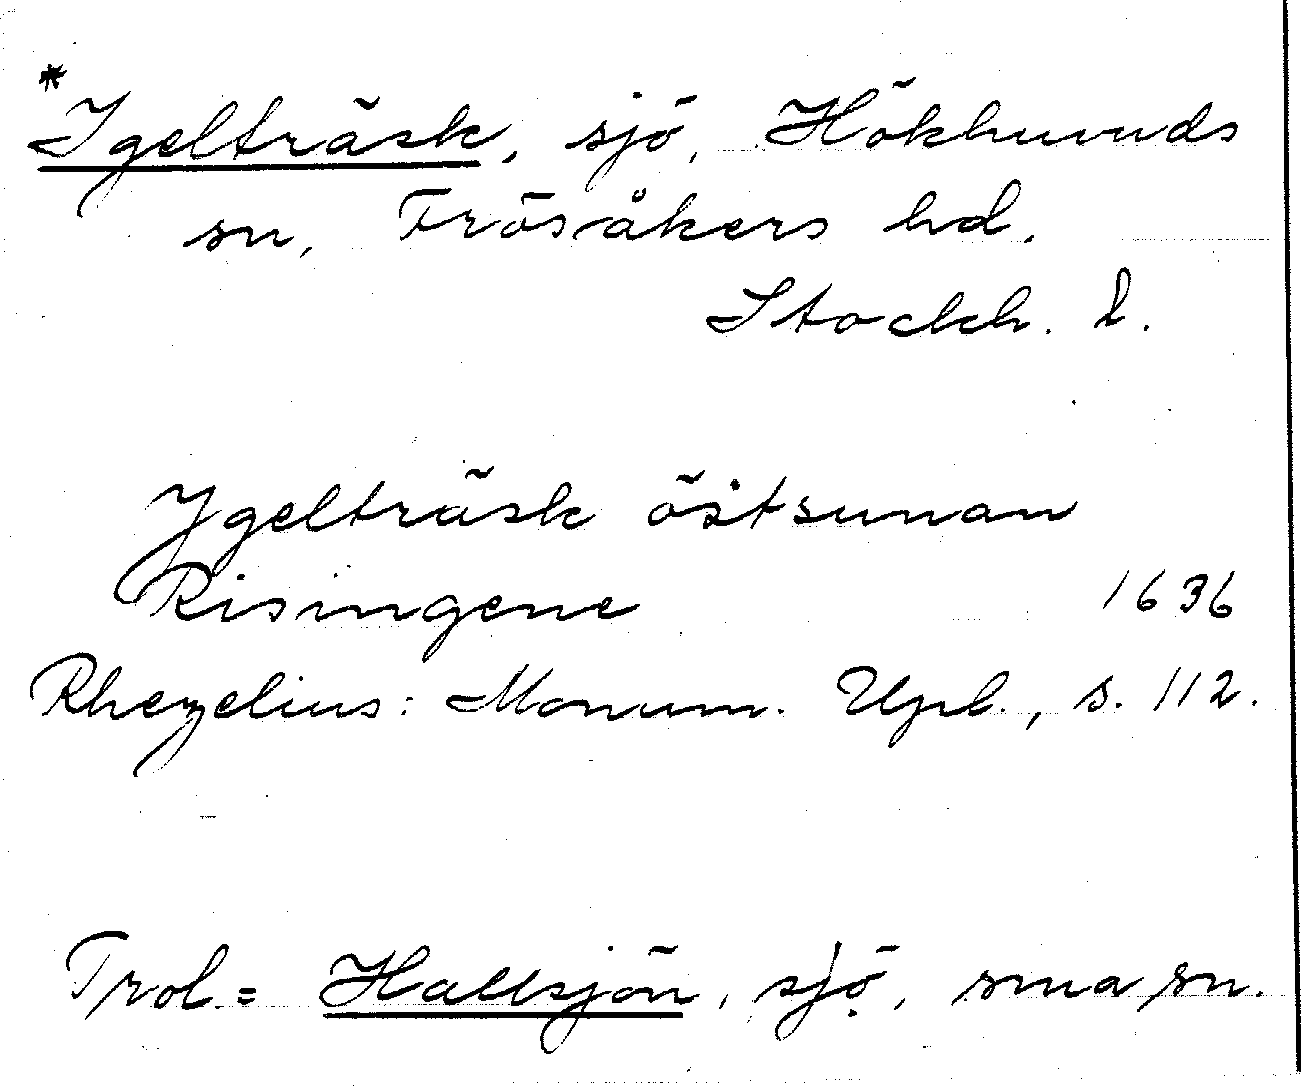 *Igelträsk, sjö, Hökhuvuds
sn, Frösåkers hd.
Stockh. l.
Ygelträsk östsunan
Risingene 1636
Rhezelius: Monum. Upl., s. 112.
Trol = Hallsjön, sjö, sma sn.